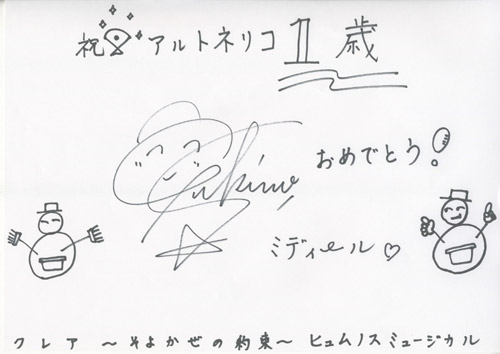 祝 アルトネリコ 1歳
おめでとう!
ミディール♡
クレア 〜そよかぜの約束〜 ヒュムノスミュージカル